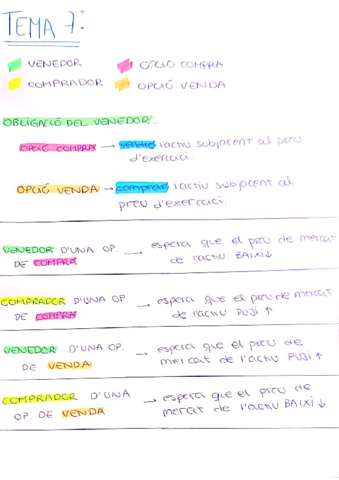 TEMA 7:
VENEDOR
OPCIÓ COMPRA
COMPRADOR
OPCIÓ VENDA
OBLIGACIÓ DEL VENEDOR:
OPCIÓ COMPRA → vendre l'actiu subjacent al preu
d'exercici.
OPCIÓ VENDA → comprar l'actiu subjacent al
preu d'exercici.
VENEDOR D'UNA OP. → espera que el preu de mercat
DE COMPRA de l'actiu BAIXI ↓
COMPRADOR D'UNA OP. → espera que el preu de mercat
DE COMPRA de l'actiu PUJI ↑
VENEDOR D'UNA OP. → espera que el preu de
DE VENDA mercat de l'actiu PUJI ↑
COMPRADOR D'UNA → espera que el preu de
OP. DE VENDA mercat de l'actiu BAIXI ↓